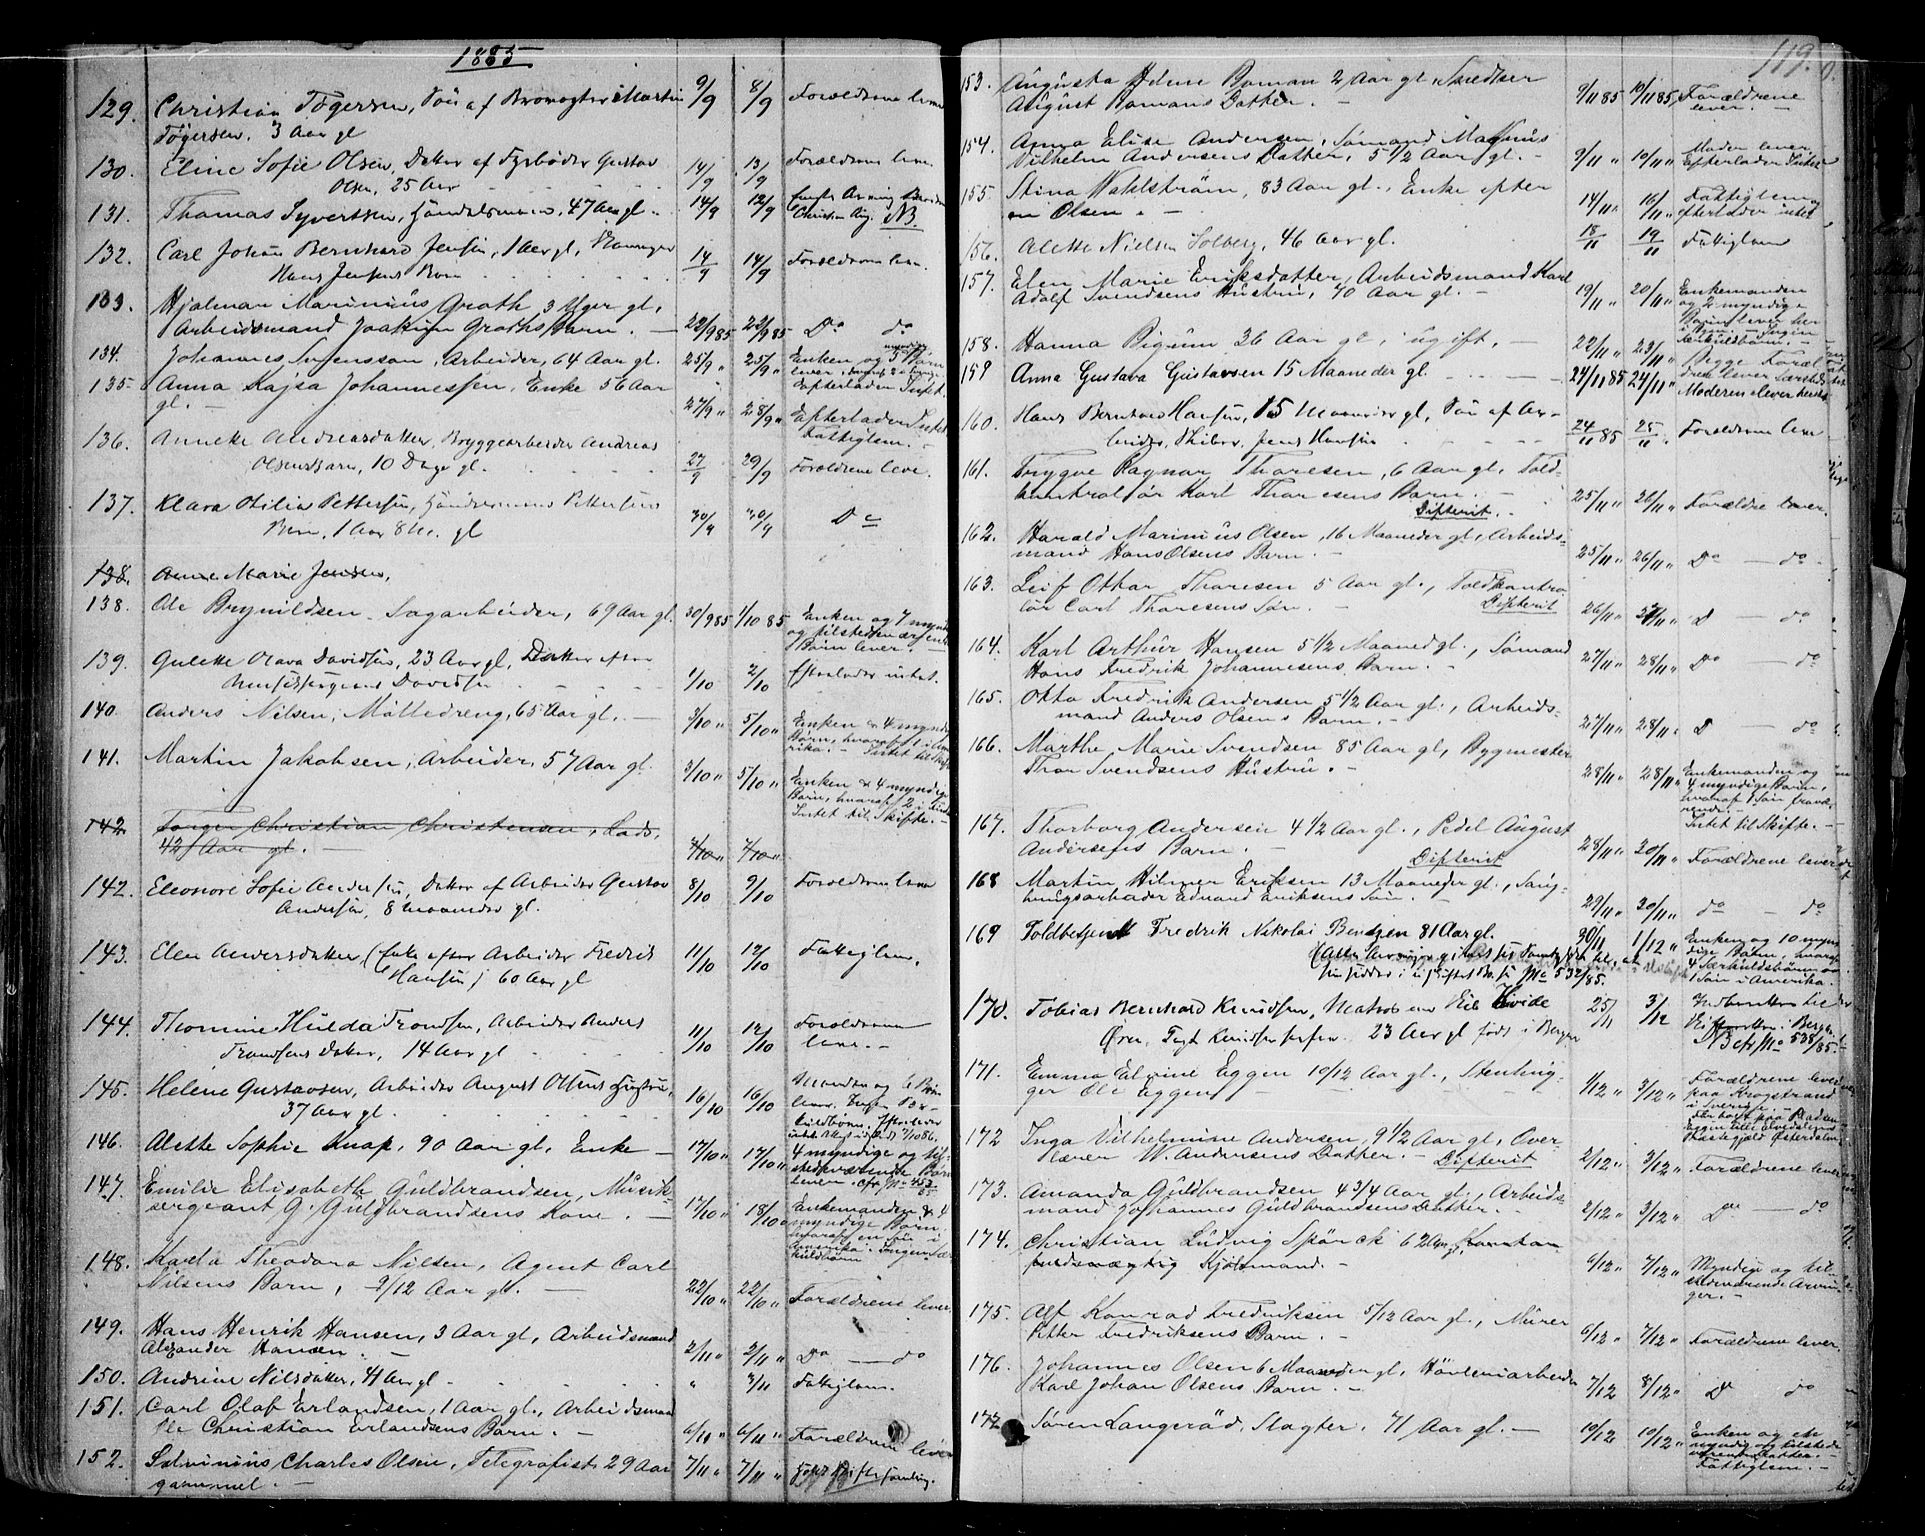 1885
129. Christian Tøgersen, Søn af Brovogter Martin 9/9 8/9 Forældrene leve
Tøgersen, 3 Aar gl
130. Eline Sofie Olsen, Datter af Fyrbøder Gustav 14/9 13/9 Forældrene leve.
Olsen, 25 Aar
131. Thomas Syvertsen, Handelsmann, 47 Aar gl. 14/9 12/9
Christian Aug. NB.
132. Carl Johan Bernhard Jensen, 1 Aar gl,
Hans Jensens Barn 14/9 14/9 Forældrene leve.
133. Hjalmar Marinius Groth 3 Uger gl,
Arbeidsmand Joakim Groths Barn. — 22/9 85 22/9 85 Do do
134. Johannes Svensson, Arbeider, 64 Aar gl. 25/9 " 25/9 " Enken og 5 myndige Børn
lever,
135 Anna Kajsa Johannessen, Enke 56 Aar Efterlader Intet.
gl. — 27/9 " 28/9 " Efterlader Intet
Fattiglem. —
136. Anneke Andreasdatter, Bryggearbeider Andreas
Olsens Barn, 10 Dage gl. 27/9 29/9 Forældrene leve.
137. Klara Otilia Pettersen, Pettersens
Barn, 1 Aar 8 M. gl 30/9 30/9 Do
138. Anne Marie Jensen,
138. Ole Brynildsen Sagarbeider, 69 Aar gl. 30/9 85 1/10 85 Enken og 7 myndige
og tilstedeværende
Børn lever. —
139. Gulette Olava Davidsen, 23 Aar gl, Datter efter
Davidsen 1/10 2/10 Efterlader intet.
140. Anders Nilsen, Mølledreng, 65 Aar gl. — 3/10 " 5/10 " Enken & 4 myndige
Børn, hvoraf 1 i Ame-
rika. — Intet til Skifte
141. Martin Jakobsen, Arbeider, 57 Aar gl. 3/10 " 5/10 " Enken & 4 myndige
Børn, hvoraf 2 i
Intet til Skifte. —
142 Jørgen Christian Christensen, Lods,
42 Aar gl. — 4/10 " 7/10 "
142. Eleonore Sofie Andersen, Datter af Arbeider Gustav 8/10 9/10 Forældrene leve
Andersen, 8 maaneder gl.
143. Elen Andersdatter (Enke efter Arbeider Fredrik 11/10 12/10 Fattiglem.
Hansen) 60 Aar gl
144. Thomine Hulda Trondsen, Arbeider Anders 11/10 12/10 Forældrene
Trondsens Datter, 14 Aar gl leve. —
145. Helene Gustavsen, Arbeider August Olsens Hustru, 16/10 16/10 Manden og 6 Børn
37 Aar gl. lever. Ingen Sær-
kuldbørn. Efterlader
146. Alette Sophie Knap, 90 Aar gl, Enke — 17/10 " 17/10 " 4 myndige og til-
stedeværende Børn
lever. cfr No 453
147. Emilie Elisabeth Guldbrandsen, Musik-
sergeant G. Guldbrandsens Kone. — 17/10 " 18/10 " Enkemanden & 4
myndige Børn,
hvoraf en Søn i
Amerika. Ingen Sær-
kuldbørn
148. Karla Theodora Nilsen, Agent Carl
Nilsens Barn, 9/12 Aar gl. — 22/10 " 22/10 " Forældrene lever.
149. Hans Henrik Hansen, 3 Aar gl, Arbeidsmand
Alexander Hansen. — 2/11 " 2/11 " Do — do
150. Andrine Nilsdatter, 41 Aar gl. " 4/11 Fattiglem.
151. Carl Olaf Erlandsen, 1 Aar gl., Arbeidsmand
Ole Christian Erlandsens Børn. — 6/11 " 6/11 " Forældrene lever
152. Severinius Charles Olsen, Telegrafist 29 Aar 7/11 " 7/11 "
gammel. —
119.
153. Augusta Helene Boman 2 Aar gl., Snedker
August Bomans Datter. — 9/11 85 10/11 85, Forældrene
lever —
154. Anna Elise Andersen, Sømand Magnus
Vilhelm Andersens Datter, 5 1/2 Aar gl. — 9/11 " 10/11 " Moder lever
Efterlader Intet
155. Stina Wahlstrøm, 83 Aar gl., Enke efter
Olsen. — 14/11 " 16/11 " Fattiglem
efterlader intet
156. Alette Nielsen Solberg, 46 Aar gl. 18/11 19/11 Fattiglem
157. Elen Marie Eriksdatter, Arbeidsmand Karl
Adolf Svendsens Hustru, 40 Aar gl. — 19/11 " 20/11 " Enkemanden
og 2 myndige
Børn lever her
i Byen. — Ingen
Særkuldbørn. —
158. Hanna Bigum 36 Aar gl, ugift. — 22/11 " 23/11 " Begge Foræl-
159 Anna Gustava Gustavsen 15 Maaneder gl. 24/11 85 24/11 " Moderen lever herst
160. Hans Bernhard Hansen, 15 Maaneder gl, Søn af Ar-
beider, Jens Hansen 24/11 85 25/11 Forældrene leve
161. Trygve Ragnar Thoresen, 6 Aar gl, Told-
kontrollør Karl Thoresens Barn. — 25/11 " 26/11 " Forældre lever.
Difterit. —
162. Harald Marinius Olsen, 16 Maaneder gl., Arbeids-
mand Hans Olsens Barn. — 25/11 " 26/11 " Do — do
163. Leif Ottar Thoresen 5 Aar gl., Toldkontro-
lør Carl Thoresens Søn. — Difterit 26/11 " 27/11 " D — do
164. Karl Arthur Hansen 5 1/2 Maaned gl., Sømand
Hans Fredrik Johannesens Barn. — 27/11 " 28/11 " Do — do
165. Otto Fredrik Andersen 5 1/2 Aar gl., Arbeids-
mand Anders Olsens Barn. — 27/11 " 28/11 " D — do
166. Marthe Marie Svendsen 85 Aar gl, Bygmester
Thor Svendsens Hustru. — 28/11 " 28/11 " Enkemanden og
4 myndige Børn,
hvoraf 1 Søn fravæ-
rende. —
Intet til Skifte. —
167. Thorborg Andersen 4 1/2 Aar gl., Pedel August
Andersens Barn. — Difterit 28/11 " 30/11 " Forældrene lever
168 Martin Hilmer Eriksen 13 Maaneder gl.,
Edvard Eriksens Søn. — 29/11 " 30/11 " do — do
169 Toldbetjent Fredrik Nikolai Bentzen 81 Aar gl. 30/11 1/12 " Enken og 10 myn-
dige Børn, hvoraf
4 Særkuldbørn og
1 Søn i Amerika.
No 532/85.
170. Tobias Bernhard Knudsen, Matros 25/11 3/12
23 Aar gl født i Bergen i Bergen
No 538/85.
171. Emma Elvine Eggen 10/12 Aar gl., Stenhug-
ger Ole Eggen 1/12 " 3/12 " Forældrene lever
paa Krogstrand
i Sverige. —
172 Inga Vilhelmine Andersen, 9 1/2 Aar gl, Over-
lærer W. Andersens Datter. — Difterit 2/12 " 3/12 " Forældrene lever
173. Amanda Guldbrandsen 4 3/4 Aar gl., Arbeids-
mand Johannes Guldbrandsens Datter. — 2/12 " 3/12 " Do — do
174. Christian Ludvig Spørck 62 Aar gl.
Kjøbmand. — 6/12 " 7/12 " Myndige og til-
stedeværende Arvin-
ger. —
175. Alf Konrad Fredriksen 5/12 Aar gl., Murer
Petter Fredriksens Barn. — 6/12 " 7/12 " Forældrene lever.
176. Johannes Olsen 6 Maaneder gl, Høvleriarbeider
Karl Johan Olsens Barn. — 7/12 8/12 " D do
177 Søren Langerød, Slagter, 71 Aar gl. — 10/12 10/12 " Enken og en
myndig og tilstede-
værende Datter. —
Fattiglem. —